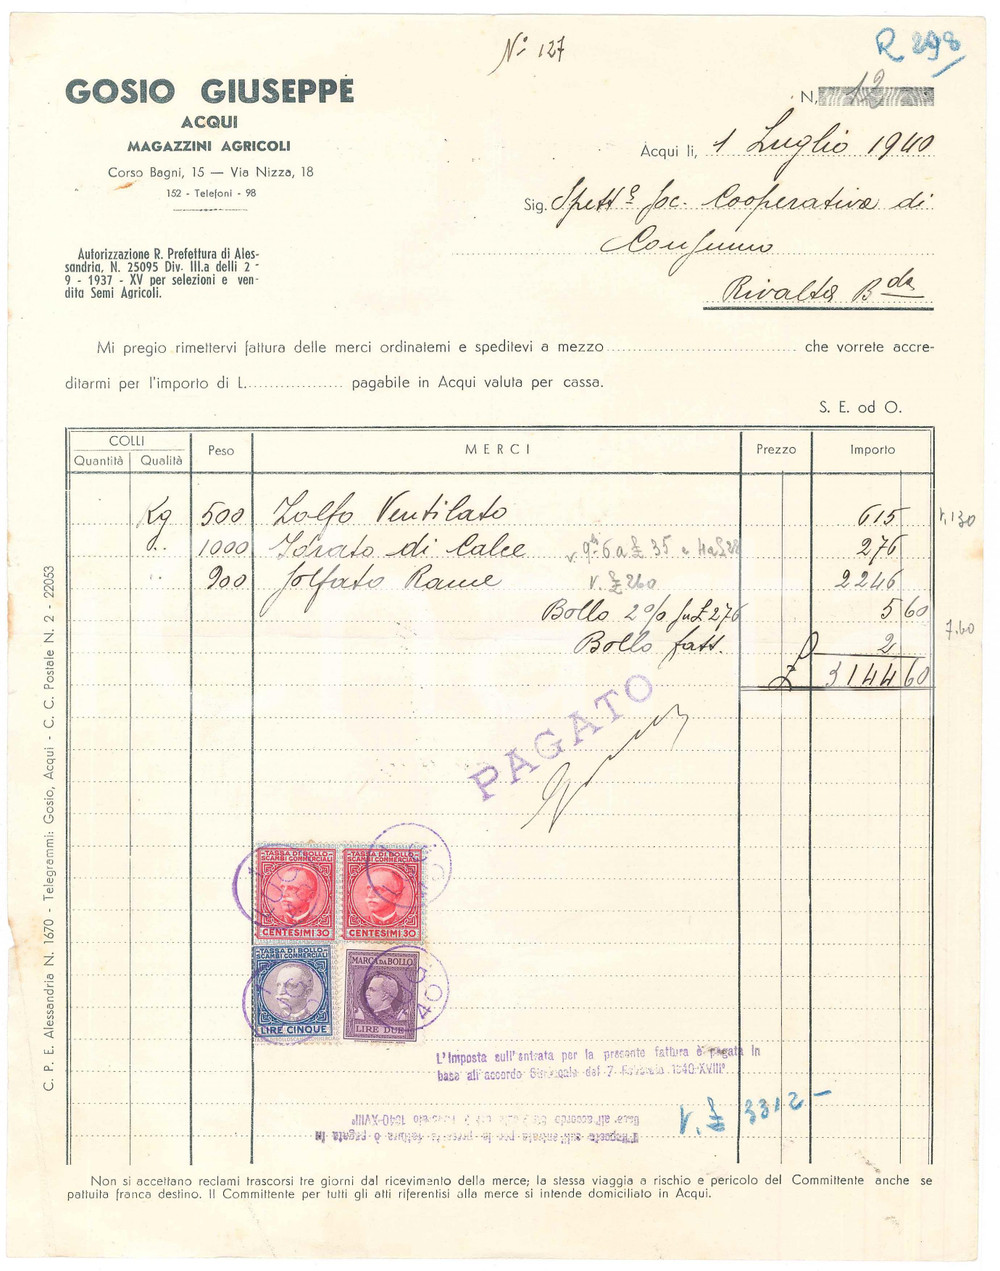 N° 127
R 298
GOSIO GIUSEPPE
ACQUI
MAGAZZINI AGRICOLI
Corso Bagni, 15 — Via Nizza, 18
152 - Telefoni - 98
N. 12
Acqui li, 1 Luglio 1940
Sig. Spett.e Soc. Cooperativa di
Consumo
Rivalta Bda
Autorizzazione R. Prefettura di Ales-
sandria, N. 25095 Div. III.a delli 2 -
9 - 1937 - XV per selezioni e ven-
dita Semi Agricoli.
Mi pregio rimettervi fattura delle merci ordinatemi e speditevi a mezzo che vorrete accre-
ditarmi per l'importo di L. pagabile in Acqui valuta per cassa.
S. E. od O.
COLLI
Quantità Qualità Peso MERCI Prezzo Importo
Kg 500 Zolfo Ventilato 615 v. 130
" 1000 Idrato di Calce v. 9.li 6 a £ 35 e 4 a £ 28 276
" 900 Solfato Rame v. £ 260 2246
Bollo 2% su £ 276 5 60
Bollo fatt. 2 7.60
£ 3144 60
PAGATO
TASSA DI BOLLO
SCAMBI COMMERCIALI
CENTESIMI 30
TASSA DI BOLLO
SCAMBI COMMERCIALI
CENTESIMI 30
TASSA DI BOLLO
SCAMBI COMMERCIALI
LIRE CINQUE
MARCA DA BOLLO
LIRE DUE
L'Imposta sull'entrata per la presente fattura è pagata in
base all'accordo Sindacale del 7 Febbraio 1940-XVIII°
L'Imposta sull'entrata per la presente fattura è pagata in
base all'accordo 1940-XVIII°
v. £ 3312 -
C. P. E. Alessandria N. 1670 - Telegrammi: Gosio, Acqui - C. C. Postale N. 2 - 22053
Non si accettano reclami trascorsi tre giorni dal ricevimento della merce; la stessa viaggia a rischio e pericolo del Committente anche se
pattuita franca destino. Il Committente per tutti gli atti riferentisi alla merce si intende domiciliato in Acqui.